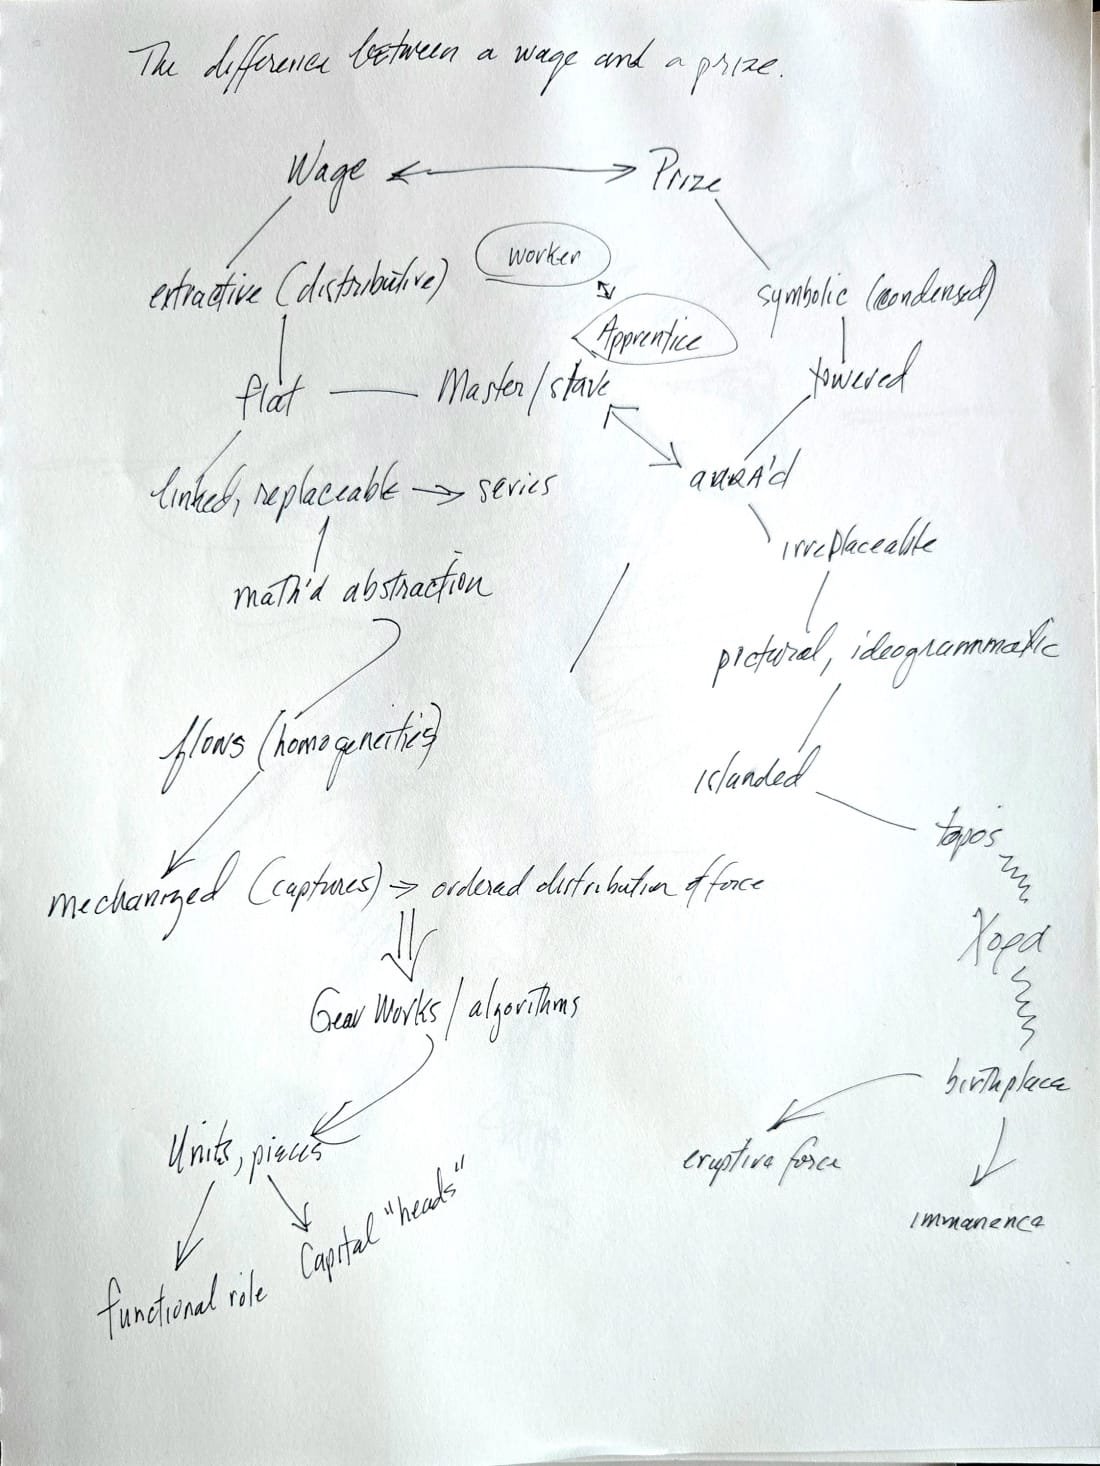 The difference between a wage and a prize.
Wage Prize
worker
extractive (distributive) symbolic (condensed)
Apprentice
flat Master/slave towered
linked, replaceable → series auRA'd
irreplaceable
math'd abstraction
pictural, ideogrammmatic
flows (homogeneities)
islanded
topos
mechanized (captures) → ordered distribution of force
Χορα
Gear Works / algorithms
birthplace
Units, pieces eruptive force
Capital "heads"
immanence
functional role